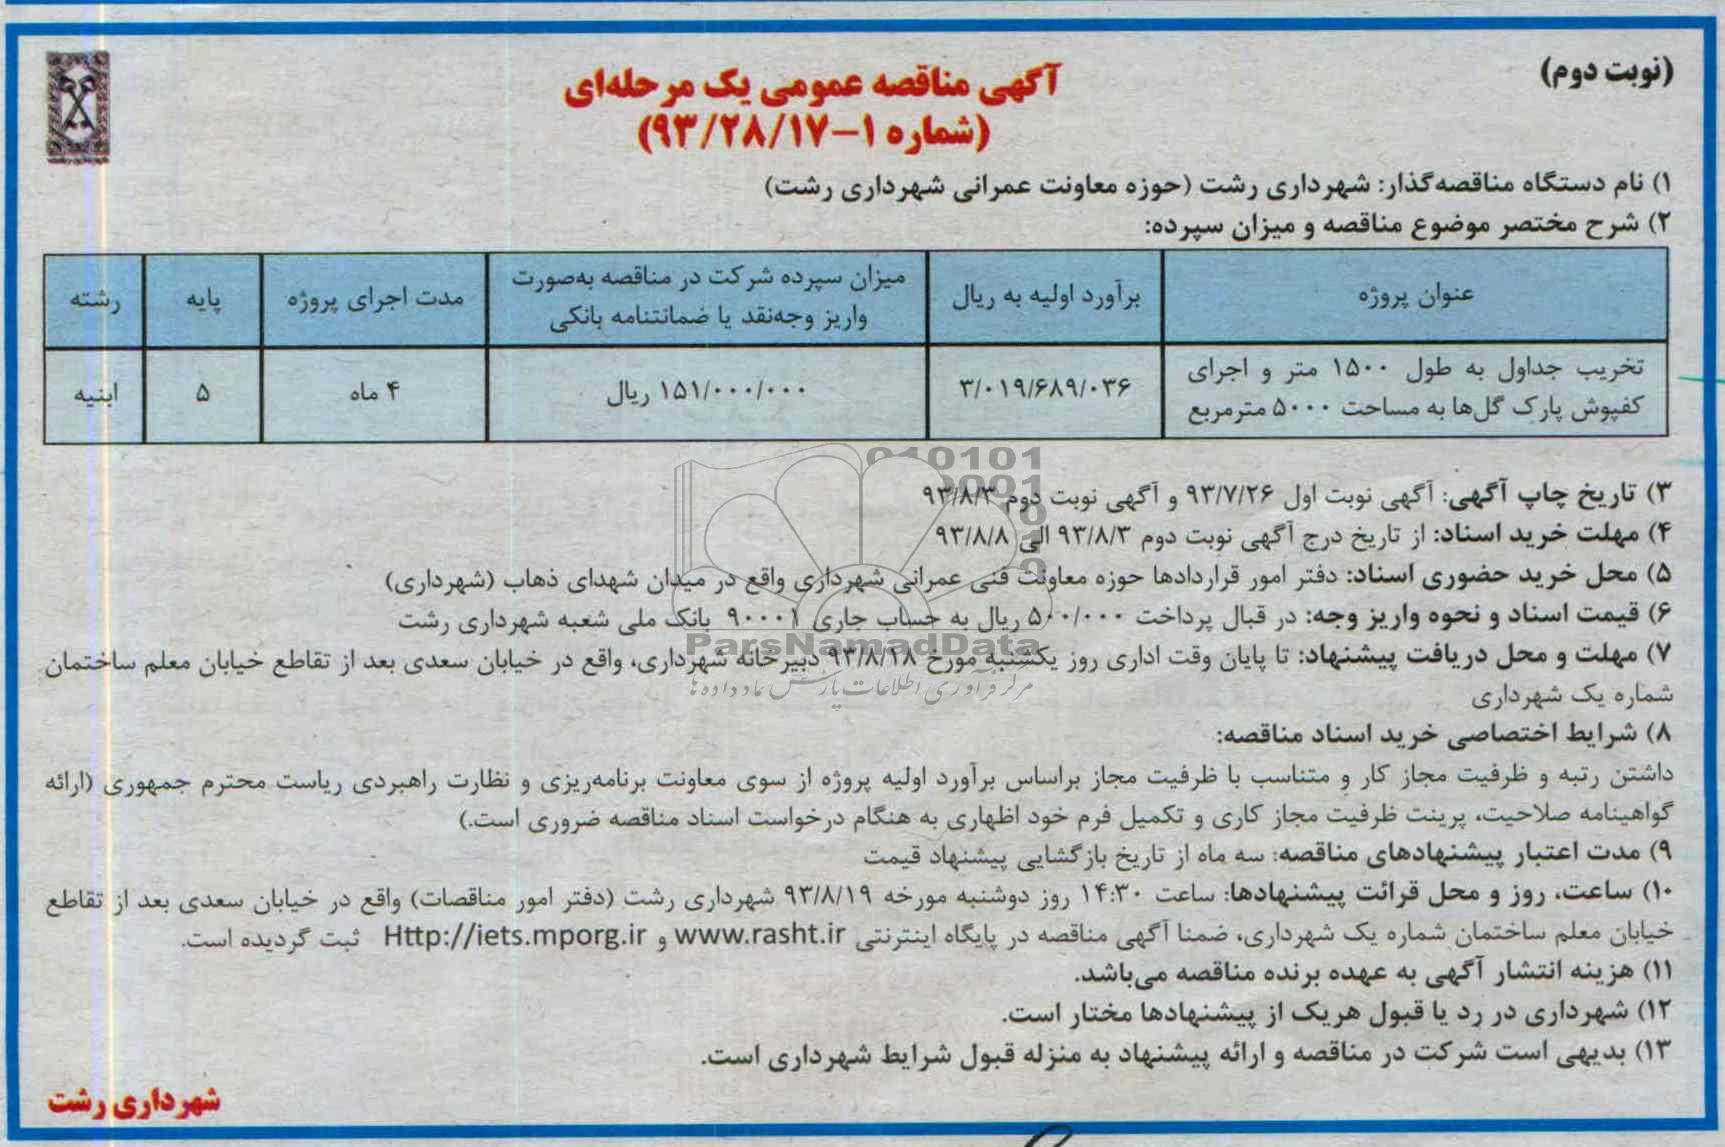 (نوبت دوم)
آگهی مناقصه عمومی یک مرحله‌ای
(شماره ۱-۹۳/۲۸/۱۷)
۱) نام دستگاه مناقصه‌گذار: شهرداری رشت (حوزه معاونت عمرانی شهرداری رشت)
۲) شرح مختصر موضوع مناقصه و میزان سپرده:
عنوان پروژه
برآورد اولیه به ریال
میزان سپرده شرکت در مناقصه به‌صورت
واریز وجه‌نقد یا ضمانتنامه بانکی
مدت اجرای پروژه
پایه
رشته
تخریب جداول به طول ۱۵۰۰ متر و اجرای
کفپوش پارک گل‌ها به مساحت ۵۰۰۰ مترمربع
۳/۰۱۹/۶۸۹/۰۳۶
۱۵۱/۰۰۰/۰۰۰ ریال
۴ ماه
۵
ابنیه
۳) تاریخ چاپ آگهی: آگهی نوبت اول ۹۳/۷/۲۶ و آگهی نوبت دوم ۹۳/۸/۳
۴) مهلت خرید اسناد: از تاریخ درج آگهی نوبت دوم ۹۳/۸/۳ الی ۹۳/۸/۸
۵) محل خرید حضوری اسناد: دفتر امور قراردادها حوزه معاونت فنی عمرانی شهرداری واقع در میدان شهدای ذهاب (شهرداری)
۶) قیمت اسناد و نحوه واریز وجه: در قبال پرداخت ۵۰۰/۰۰۰ ریال به حساب جاری ۹۰۰۰۱ بانک ملی شعبه شهرداری رشت
۷) مهلت و محل دریافت پیشنهاد: تا پایان وقت اداری روز یکشنبه مورخ ۹۳/۸/۱۸ دبیرخانه شهرداری، واقع در خیابان سعدی بعد از تقاطع خیابان معلم ساختمان
شماره یک شهرداری
۸) شرایط اختصاصی خرید اسناد مناقصه:
داشتن رتبه و ظرفیت مجاز کار و متناسب با ظرفیت مجاز براساس برآورد اولیه پروژه از سوی معاونت برنامه‌ریزی و نظارت راهبردی ریاست محترم جمهوری (ارائه
گواهینامه صلاحیت، پرینت ظرفیت مجاز کاری و تکمیل فرم خود اظهاری به هنگام درخواست اسناد مناقصه ضروری است.)
۹) مدت اعتبار پیشنهادهای مناقصه: سه ماه از تاریخ بازگشایی پیشنهاد قیمت
۱۰) ساعت، روز و محل قرائت پیشنهادها: ساعت ۱۴:۳۰ روز دوشنبه مورخه ۹۳/۸/۱۹ شهرداری رشت (دفتر امور مناقصات) واقع در خیابان سعدی بعد از تقاطع
خیابان معلم ساختمان شماره یک شهرداری، ضمنا آگهی مناقصه در پایگاه اینترنتی www.rasht.ir و Http://iets.mporg.ir ثبت گردیده است.
۱۱) هزینه انتشار آگهی به عهده برنده مناقصه می‌باشد.
۱۲) شهرداری در رد یا قبول هریک از پیشنهادها مختار است.
۱۳) بدیهی است شرکت در مناقصه و ارائه پیشنهاد به منزله قبول شرایط شهرداری است.
شهرداری رشت
ParsNamadData
مرکز فرآوری اطلاعات پارس نماد داده‌ها